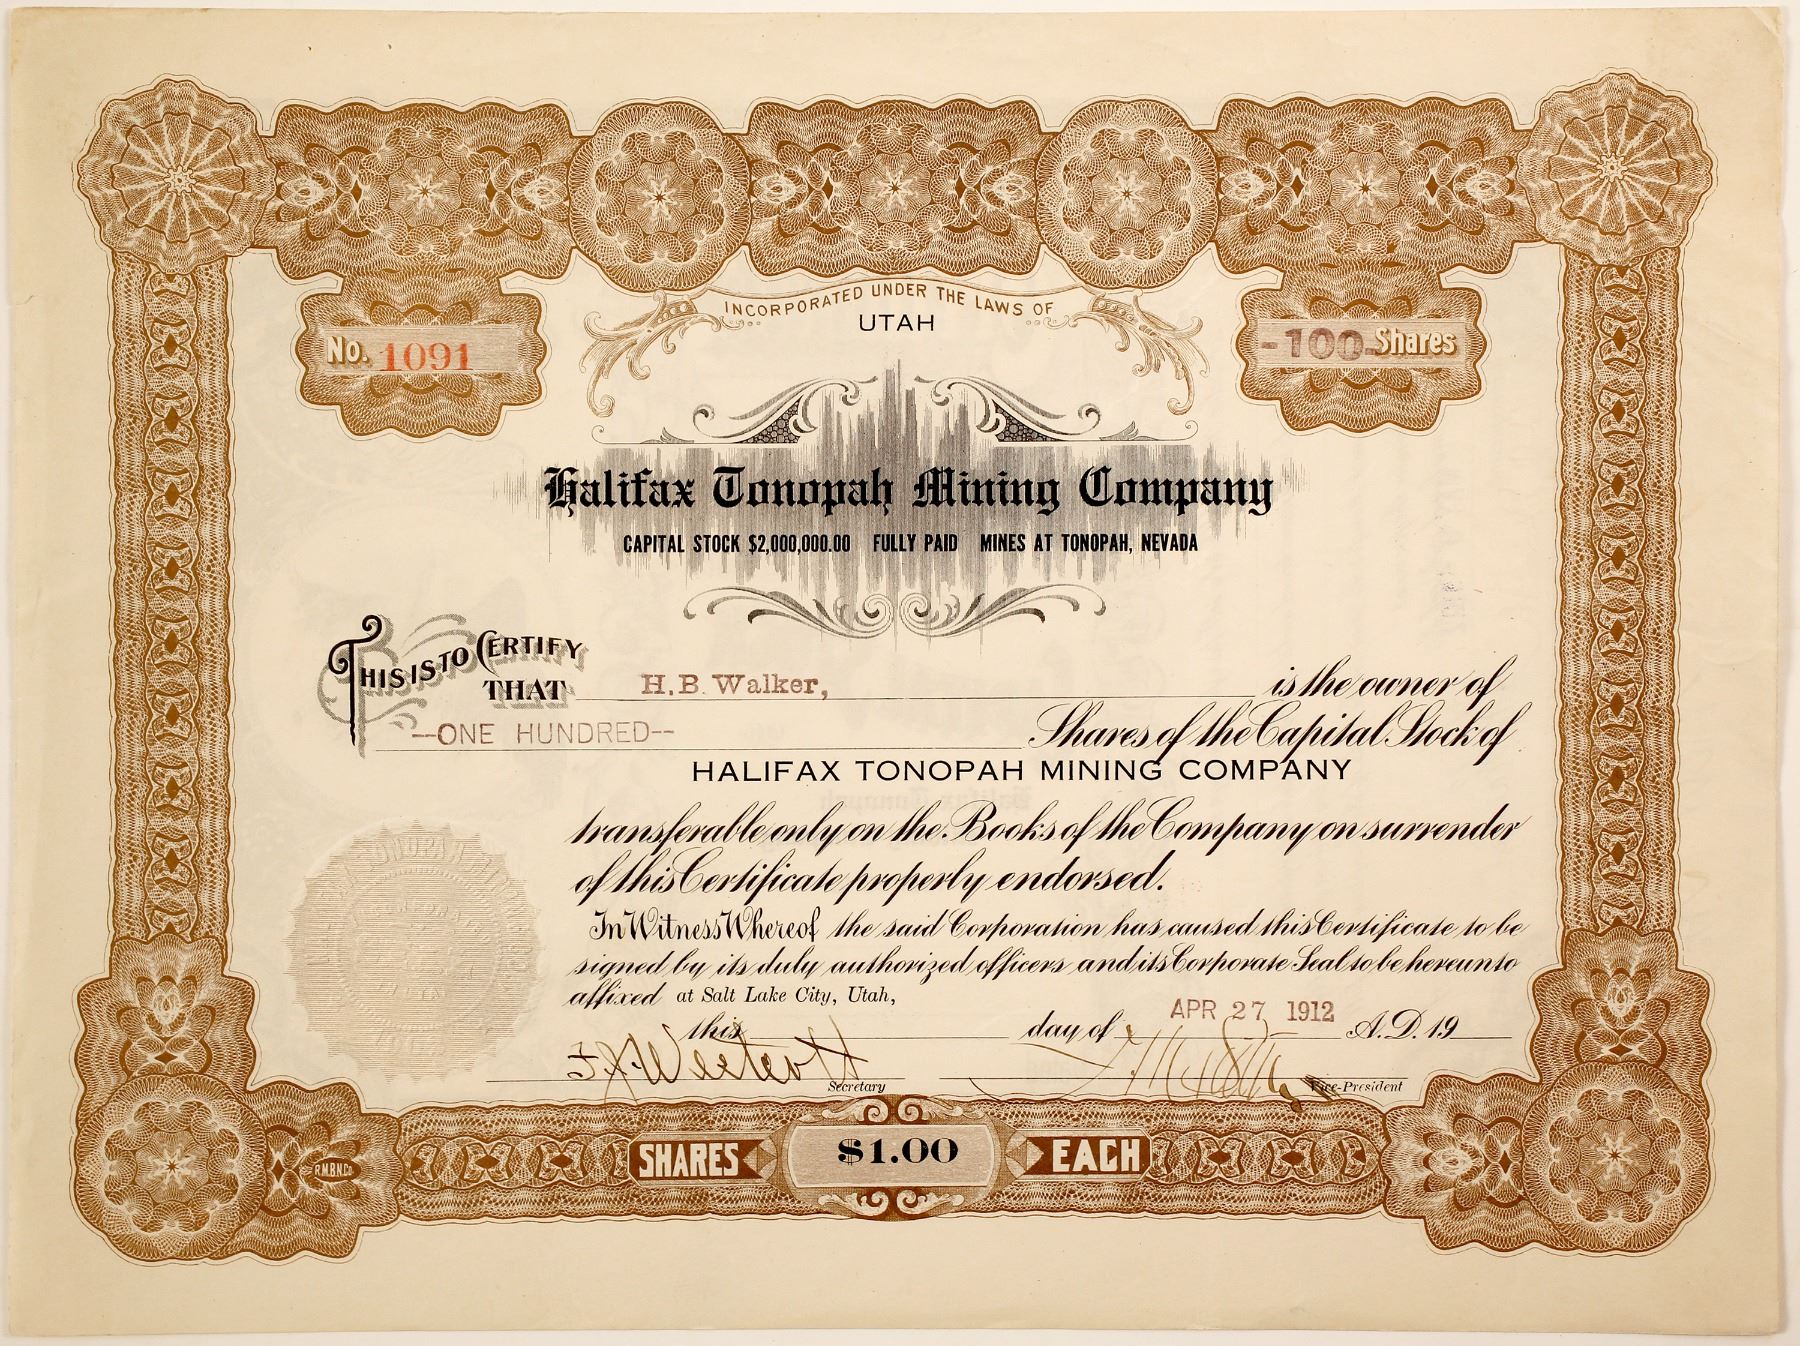 INCORPORATED UNDER THE LAWS OF
UTAH
No. 1091
-100- Shares
Halifax Tonopah Mining Company
CAPITAL STOCK $2,000,000.00 FULLY PAID MINES AT TONOPAH, NEVADA
THIS IS TO CERTIFY
THAT H. B. Walker, is the owner of
--ONE HUNDRED-- Shares of the Capital Stock of
HALIFAX TONOPAH MINING COMPANY
transferable only on the Books of the Company on surrender
of this Certificate properly endorsed.
In Witness Whereof the said Corporation has caused this Certificate to be
signed by its duly authorized officers and its Corporate Seal to be hereunto
affixed at Salt Lake City, Utah,
this day of APR 27 1912 A.D. 19
F J Westcott
Secretary
Vice-President
R.M.B.N.Co.
SHARES $1.00 EACH